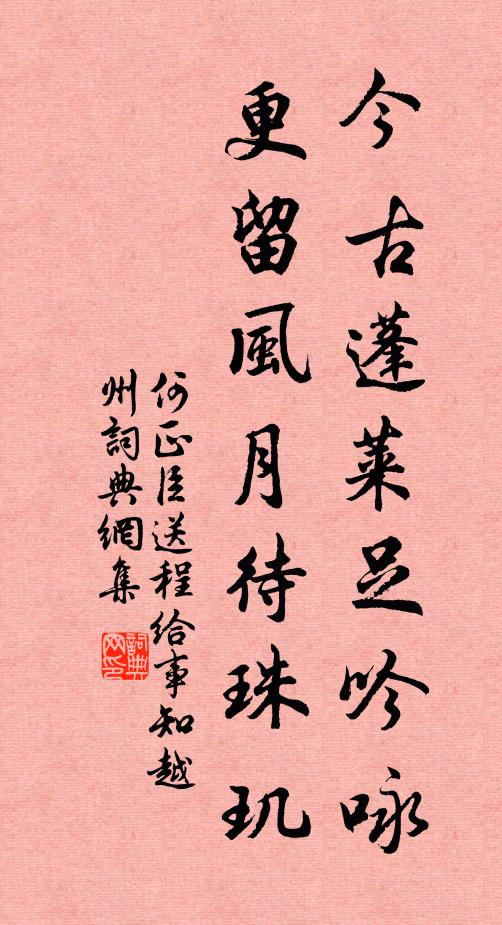 今古蓬萊足吟咏
更留風月待珠玑
何正臣送程給事知越
州詞典網集
詞典
网印